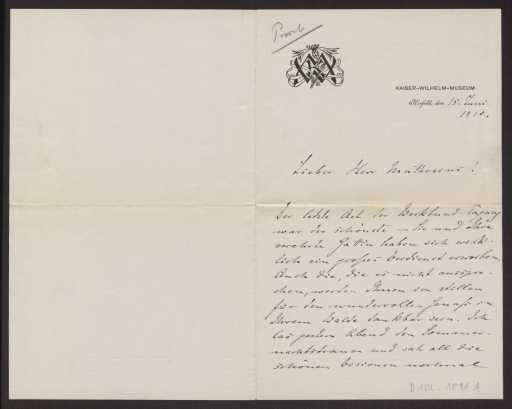 KAISER-WILHELM-MUSEUM
den 15. Juni
1910.
Lieber Herr Muthesius!
Der letzte Act der Werkbund-Tagung
war der schönste – Sie und Ihre
verehrte Gattin haben sich wirk-
lich ein großes Verdienst erworben.
Auch die, die es nicht ausspre-
chen, werden Ihnen im stillen
für den wundervollen Genuß in
Ihrem Walde dankbar sein. Ich
las gestern Abend den Sommer-
nachtstraum und sah all die
schönen Visionen nochmal